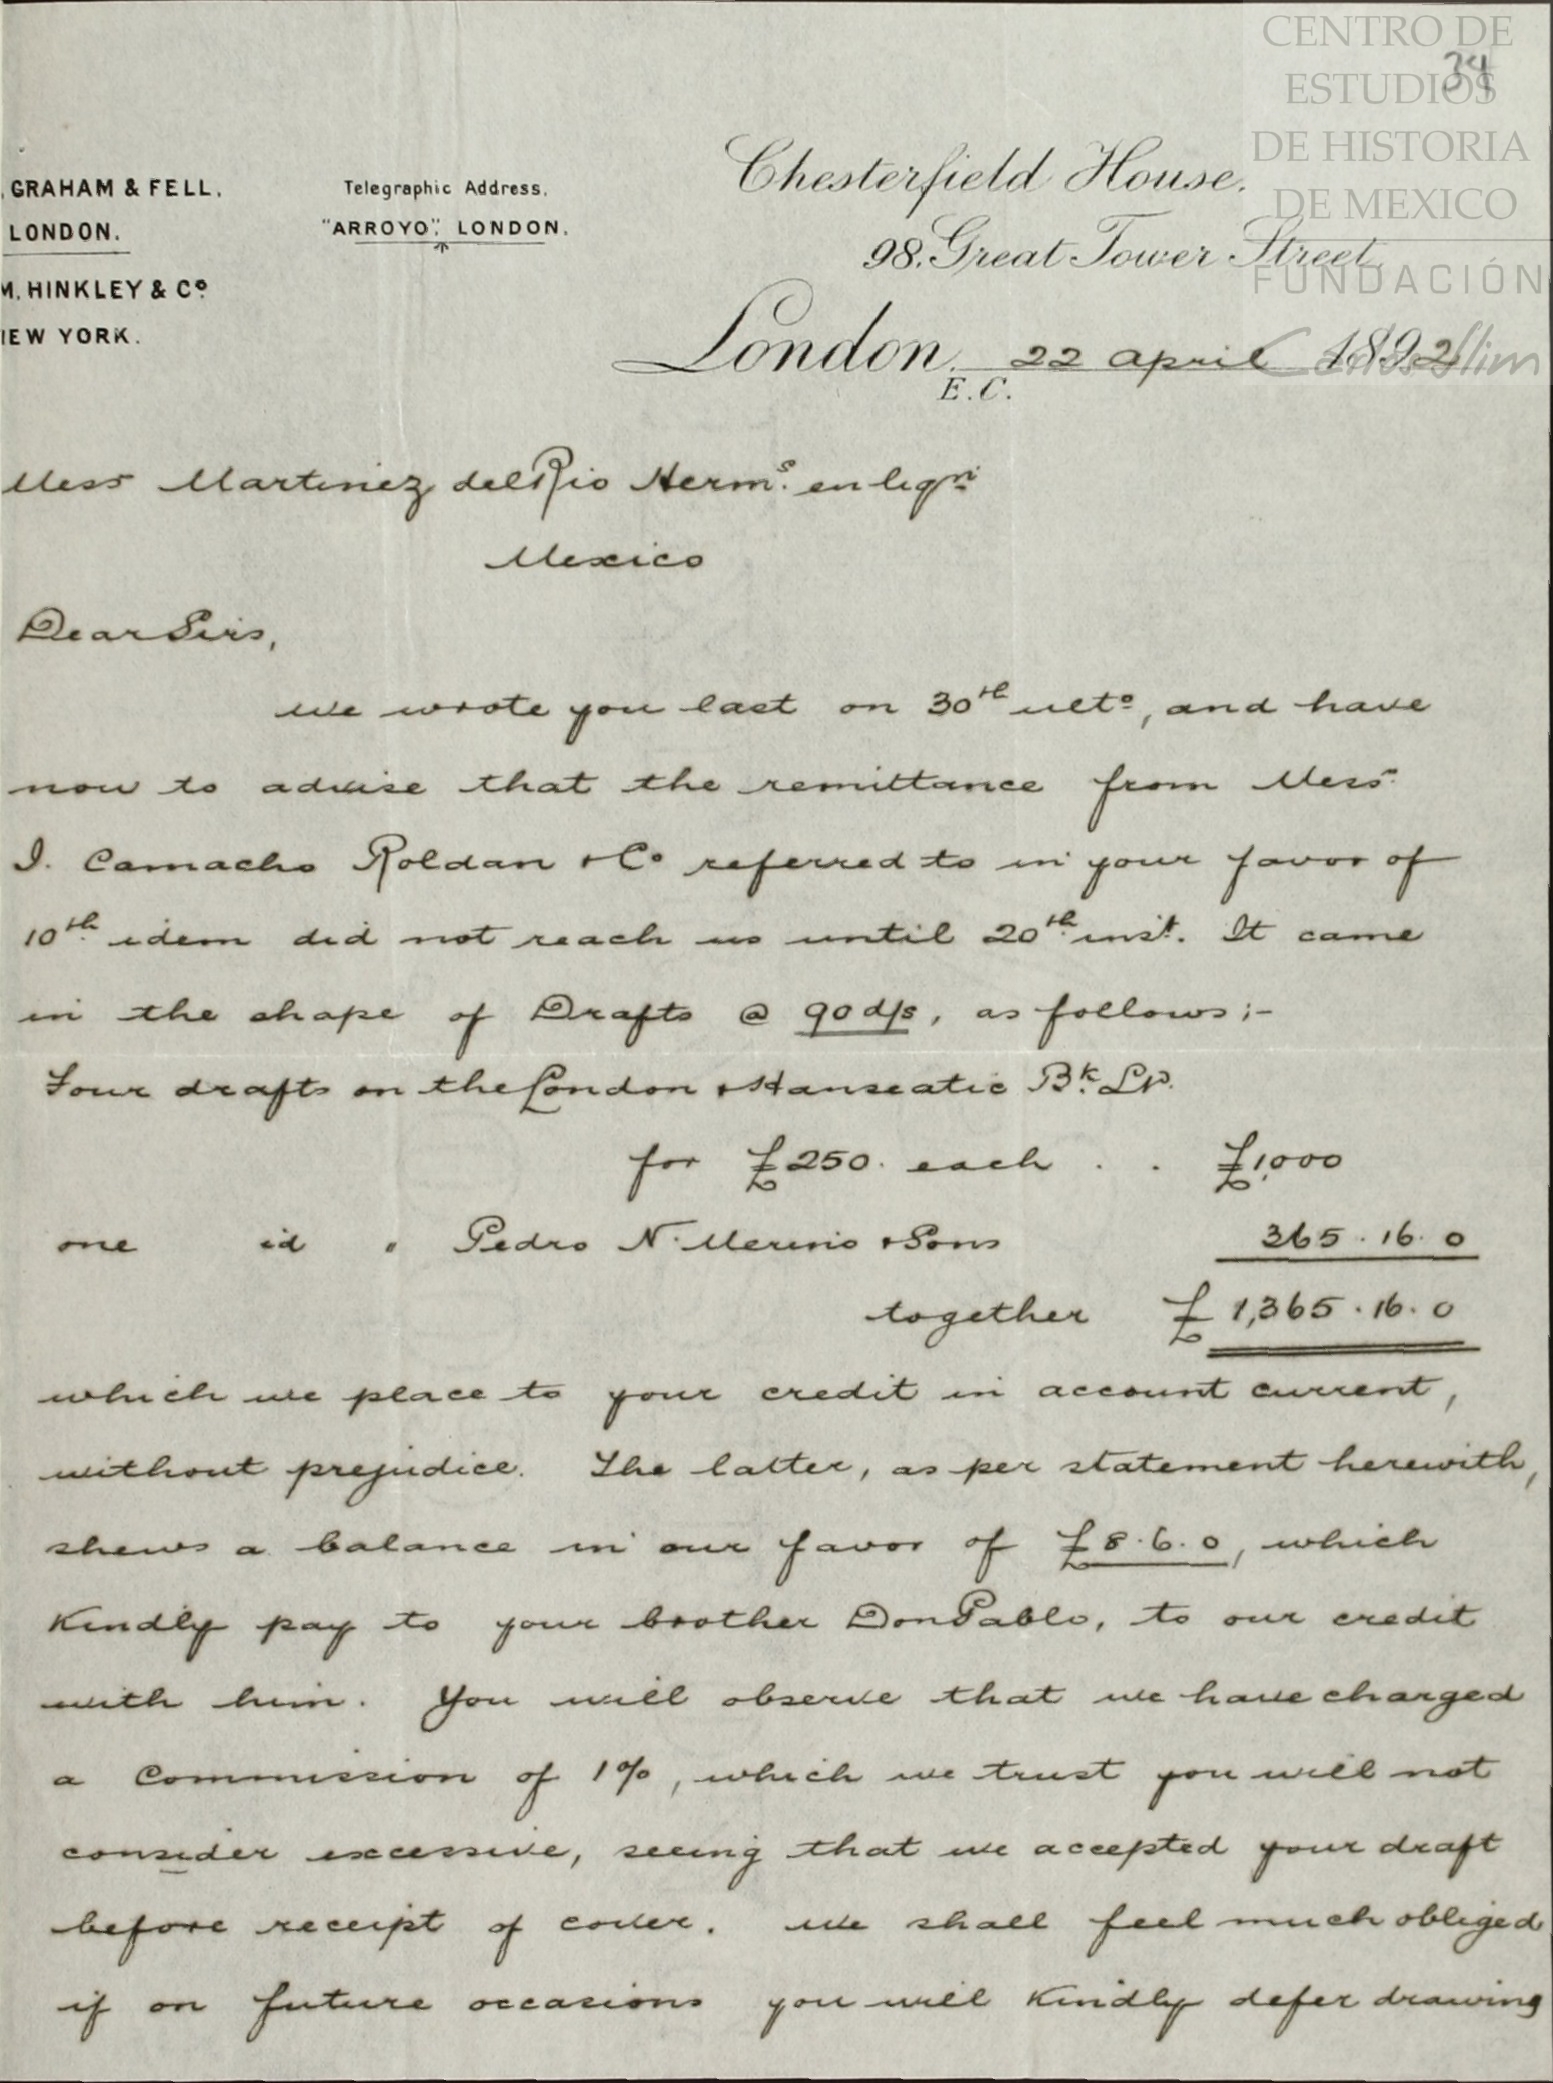 CENTRO DE
ESTUDIOS
DE HISTORIA
DE MEXICO
FUNDACIÓN
Carlos Slim
34
GRAHAM & FELL.
LONDON.
M. HINKLEY & Cº
NEW YORK.
Telegraphic Address,
"ARROYO", LONDON.
Chesterfield House.
98. Great Tower Street,
London, 22 April 1892
E.C.
Mess Martinez del Rio Herm.s en liqn
Mexico
Dear Sirs,
We wrote you last on 30th ulto, and have
now to advise that the remittance from Mess.
J. Camacho Roldan & Co referred to in your favor of
10th idem did not reach us until 20th inst. It came
in the shape of Drafts @ 90 d/s, as follows;-
Four drafts on the London & Hanseatic Bk Ld.
for £250. each . . £1,000
one id " Pedro N. Merino & Sons 365.16.0
together £1,365.16.0
which we place to your credit in account current,
without prejudice. The latter, as per statement herewith,
shews a balance in our favor of £8.6.0, which
kindly pay to your brother Don Pablo, to our credit
with him. You will observe that we have charged
a Commission of 1%, which we trust you will not
consider excessive, seeing that we accepted your draft
before receipt of cover. We shall feel much obliged
if on future occasions you will kindly defer drawing